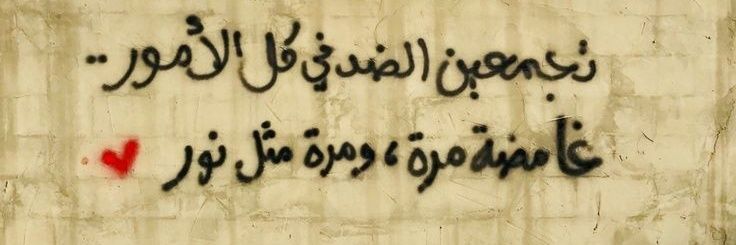 تجمعين الضد في كل الأمور..
غامضة مرة، ومرة مثل نور